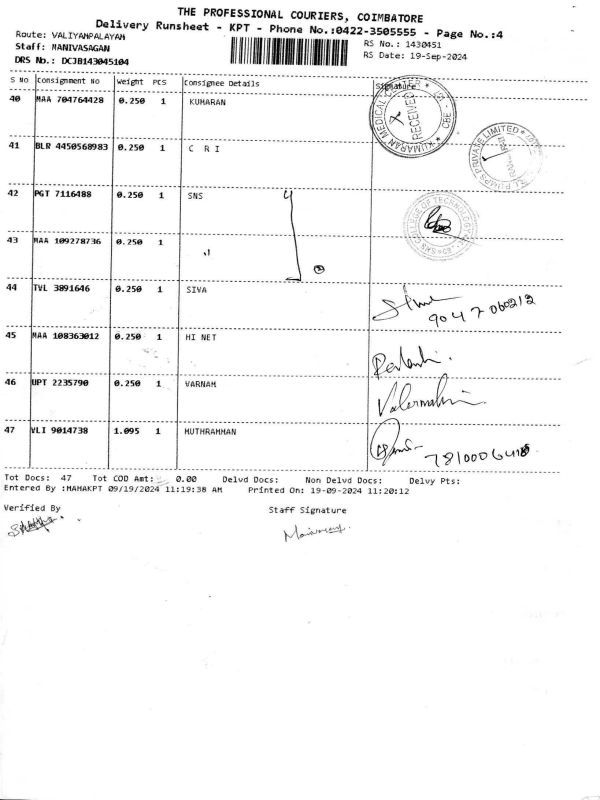 THE PROFESSIONAL COURIERS, COIMBATORE
Delivery Runsheet - KPT - Phone No.:0422-3505555 - Page No.:4
Route: VALIYAMPALAYAM
Staff: MANIVASAGAN
RS No.: 1430451
DRS No.: DCJB143045104
RS Date: 19-Sep-2024
S No Consignment No Weight PCS Consignee Details Signature
40 MAA 704764428 0.250 1 KUMARAN
KUMARAN MEDICAL CENTER RECEIVED CBE
41 BLR 4450568983 0.250 1 C R I
PUMPS PRIVATE LIMITED
42 PGT 7116488 0.250 1 SNS
SNS COLLEGE OF TECHNOLOGY
43 MAA 109278736 0.250 1 "
44 TVL 3891646 0.250 1 SIVA
9047060212
45 MAA 108363012 0.250 1 HI NET
46 UPT 2235790 0.250 1 VARNAM
47 VLI 9014738 1.095 1 MUTHRAMMAN
Tot Docs: 47 Tot COD Amt: 0.00 Delvd Docs: Non Delvd Docs: Delvy Pts:
Entered By :MAHAKPT 09/19/2024 11:19:38 AM Printed On: 19-09-2024 11:20:12
Verified By
Staff Signature